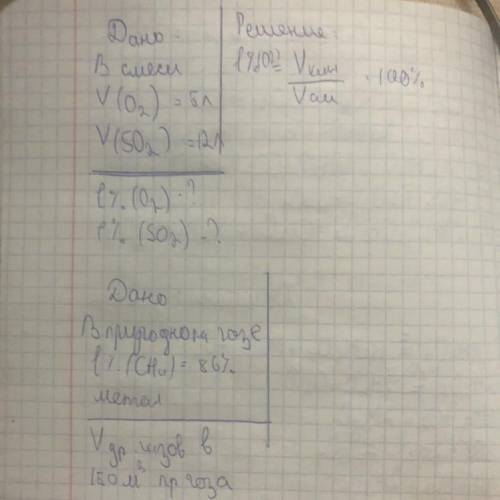 Дано.
В смеси
V(O₂) = 5л
V(SO₂) = 12л
φ%(O₂) - ?
φ%(SO₂) - ?
Решение.
φ%(O₂) = Vкмп / Vсм · 100%
Дано
В природном газе
φ%(CH₄) = 86%
метан
V др. газов в
150м³ пр газа